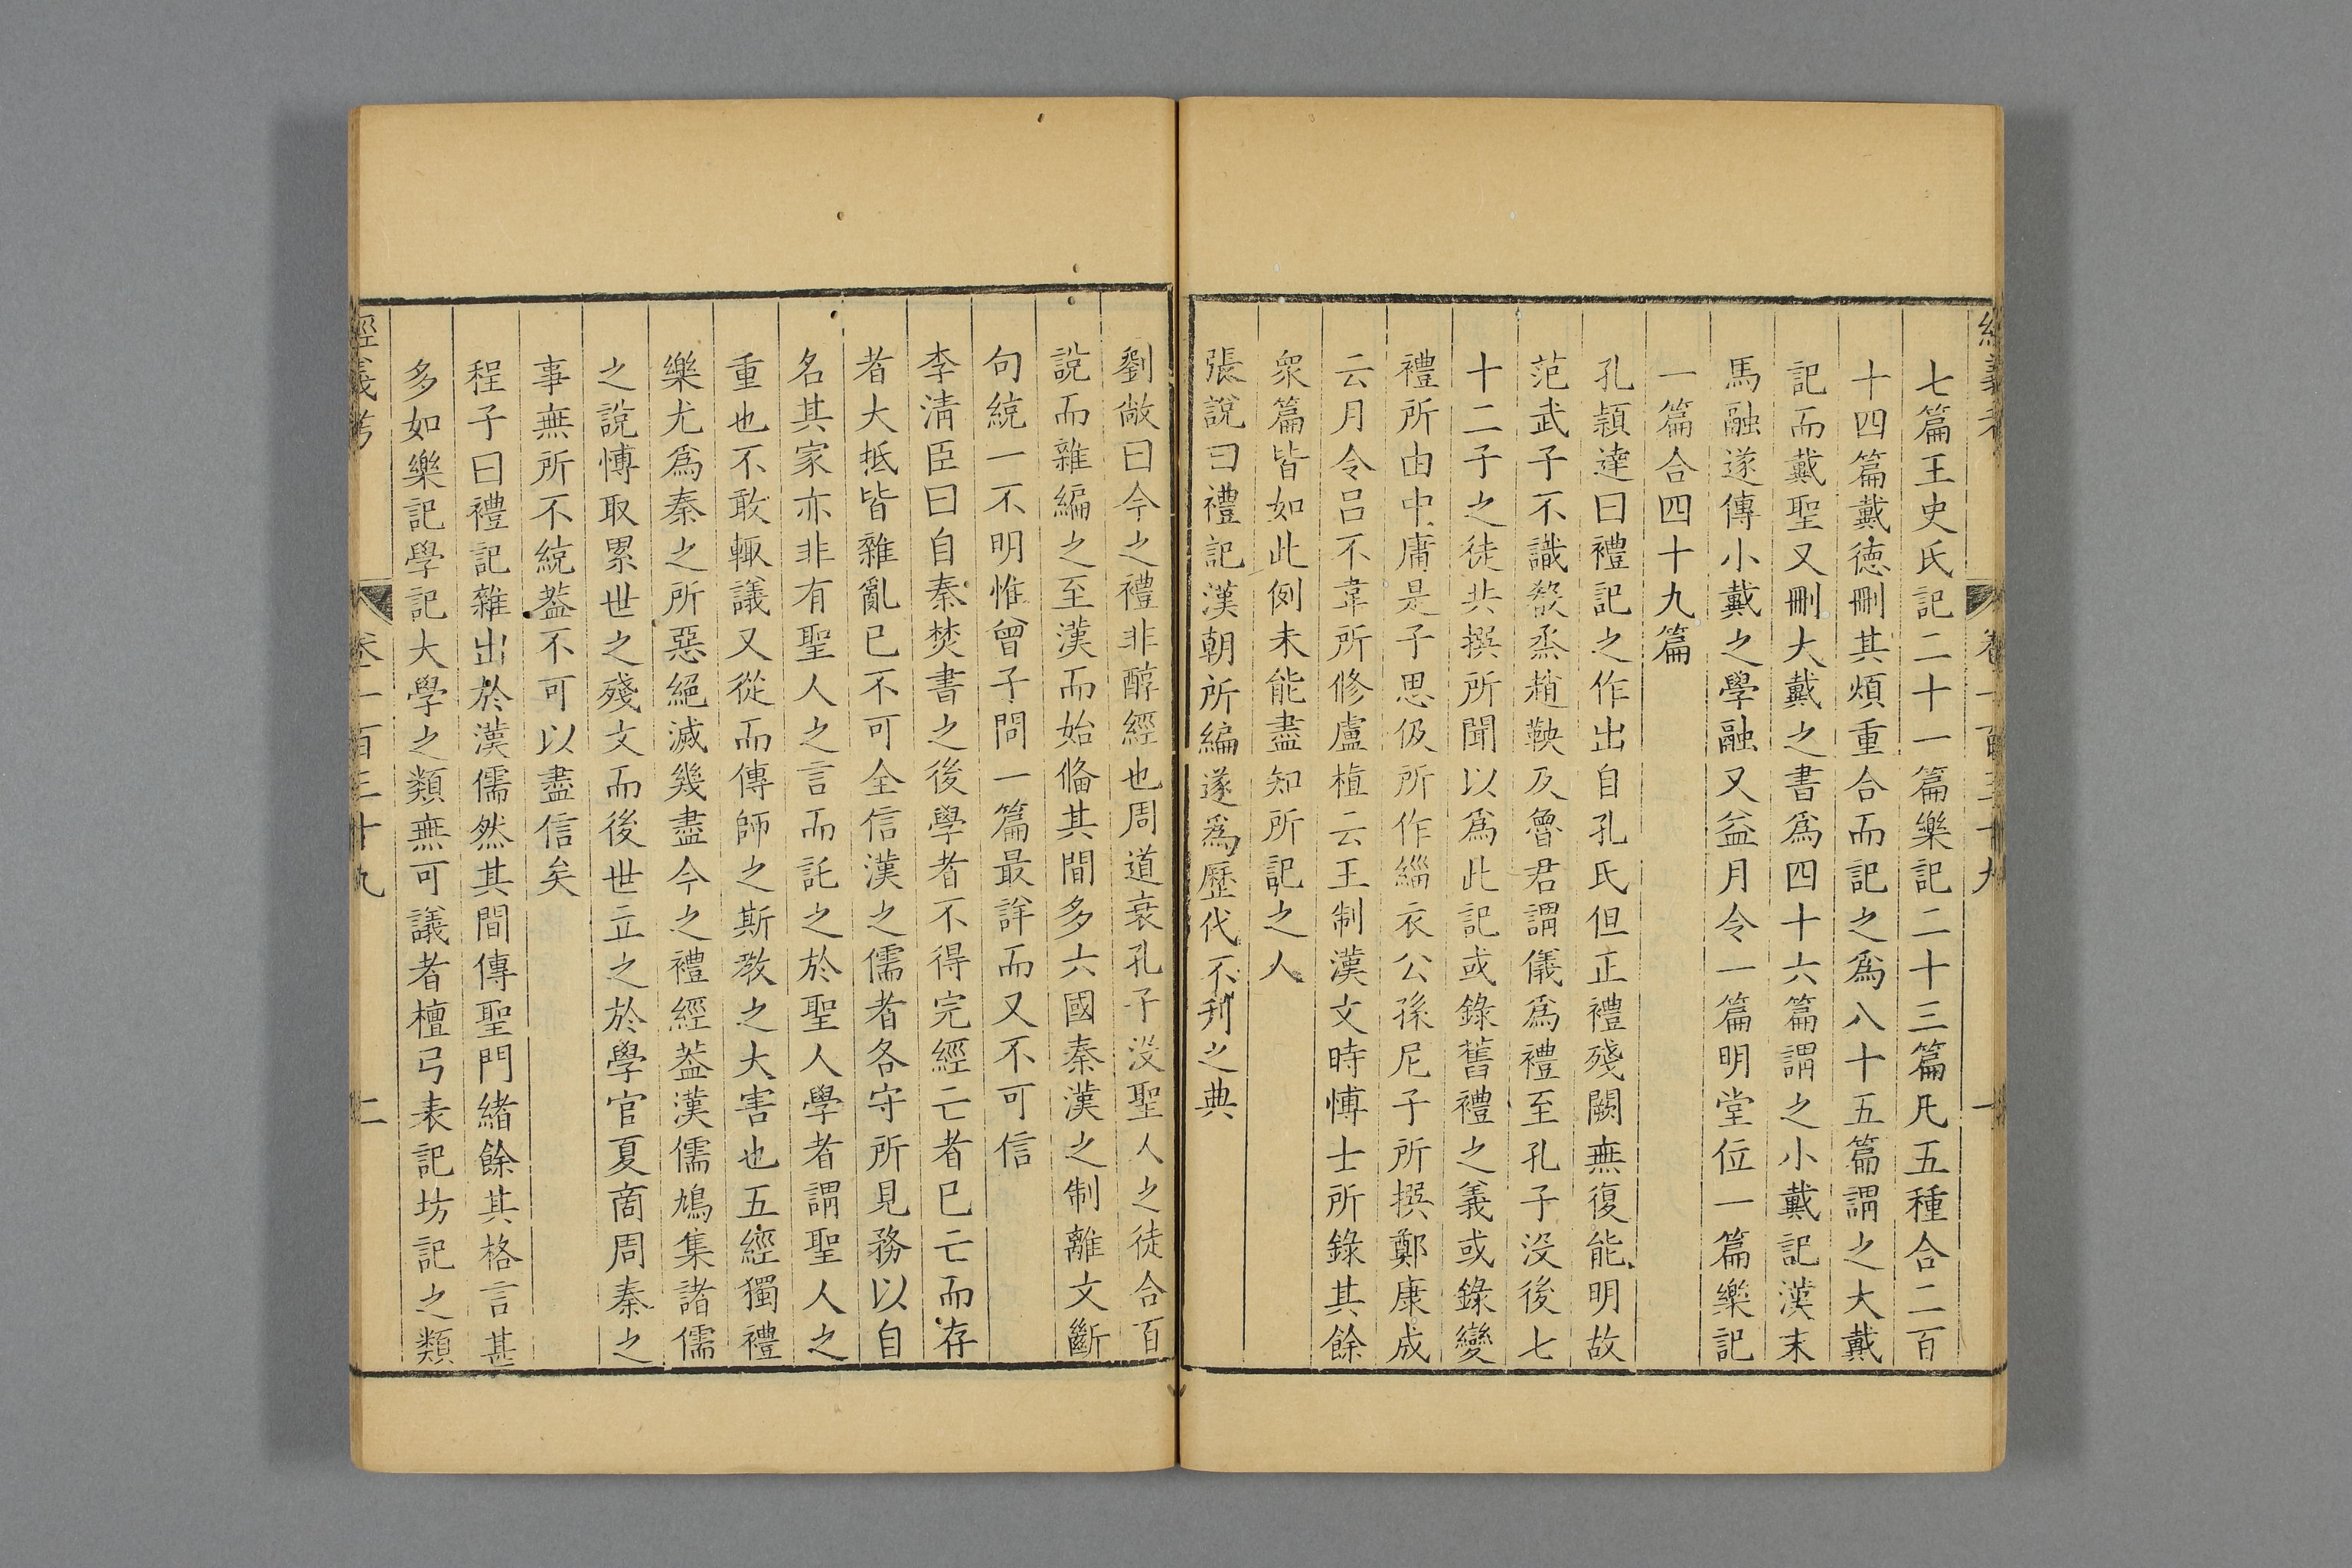 七篇王史氏記二十一篇樂記二十三篇凡五種合二百
十四篇戴德刪其煩重合而記之爲八十五篇謂之大戴
記而戴聖又刪大戴之書爲四十六篇謂之小戴記漢末
馬融遂傳小戴之學融又益月令一篇明堂位一篇樂記
一篇合四十九篇
孔頴達曰禮記之作出自孔氏但正禮殘闕無復能明故
范武子不識殽烝趙鞅及魯君謂儀爲禮至孔子没後七
十二子之徒共撰所聞以爲此記或錄舊禮之義或錄變
禮所由中庸是子思伋所作緇衣公孫尼子所撰鄭康成
云月令吕不韋所修盧植云王制漢文時博士所錄其餘
衆篇皆如此例未能盡知所記之人
張說曰禮記漢朝所編遂爲歷代不刋之典
劉敞曰今之禮非醇經也周道衰孔子没聖人之徒合百
說而雜編之至漢而始偹其間多六國秦漢之制離文斷
句統一不明惟曾子問一篇最詳而又不可信
李淸臣曰自秦焚書之後學者不得完經亡者已亡而存
者大抵皆雜亂已不可全信漢之儒者各守所見務以自
名其家亦非有聖人之言而託之於聖人學者謂聖人之
重也不敢輙議又從而傳師之斯教之大害也五經獨禮
樂尤爲秦之所惡絕滅幾盡今之禮經葢漢儒鳩集諸儒
之說博取累世之殘文而後世立之於學官夏商周秦之
事無所不統葢不可以盡信矣
程子曰禮記雜出於漢儒然其間傳聖門緒餘其格言甚
多如樂記學記大學之類無可議者檀弓表記坊記之類
經義考 卷一百三十九 二